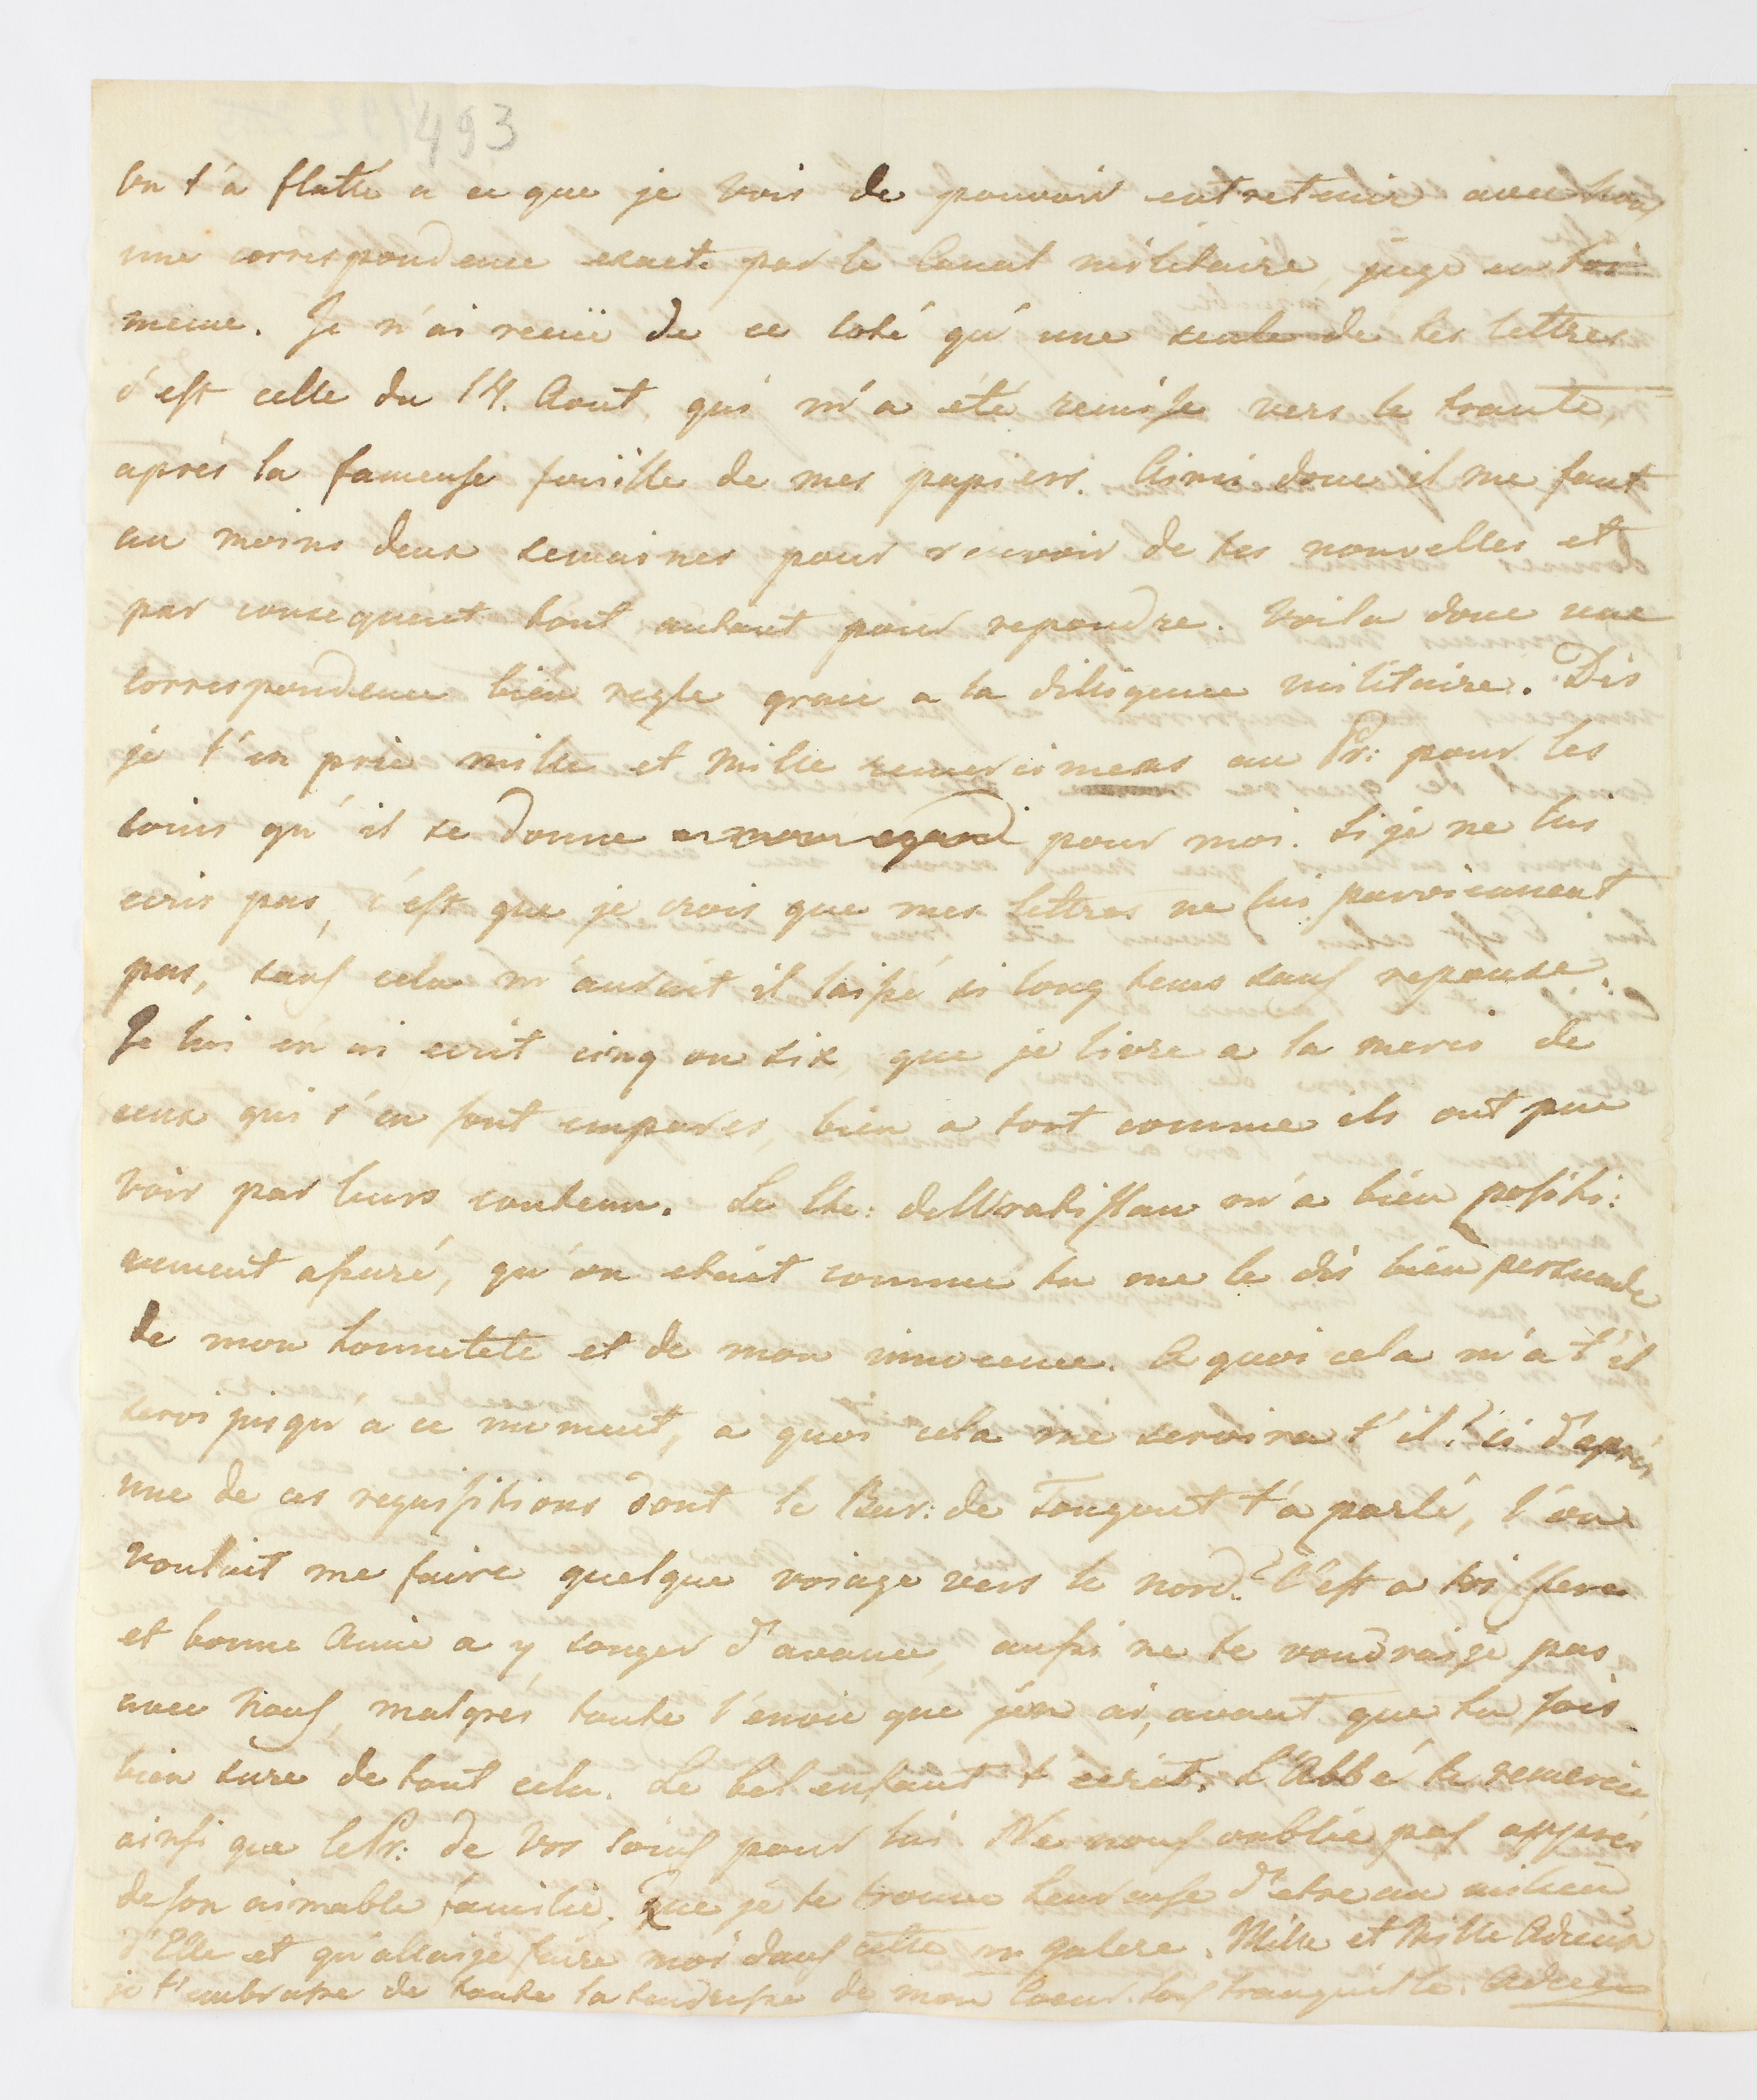 493
On t'a flatté a ce que je vois de pouvoir entretenir avec nous
une correspondence exacte par le Canal militaire, juge en toi
meme. Je n'ai recuë de ce coté qu'une seule de tes lettres
c'est celle du 14. Aout, qui m'a été remise vers le trante,
aprés la fameuse fouille de mes papiers. Ainsi donc il me faut
au moins deux semaines pour recevoir de tes nouvelles et
par consequent tout autant pour repondre. Voila donc une
correspondence bien regle grace a la diligence militaire. Dis
je t'en prie mille et mille remercimens au Pr: pour les
soins qu'il se donne a mon egard pour moi. Si je ne lui
ecris pas, c'est que je crois que mes lettres ne lui parviennent
pas, sans cela m'auroit il laissé si long tems sans reponse.
Je lui en ai ecrit cinq ou six, que je livre a la merci de
ceux qui s'en sont emparés, bien a tort comme ils ont pue
voir par leurs contenu. Le Cte: de Wratislau m'a bien positi:
vement assuré, qu'on etoit comme tu me le dis bien persuade
de mon honnetete et de mon innocence. A quoi cela m'a t'il
servi jusqu'a ce moment, a quoi cela me servira t'il! si d'aprés
une de ces requisitions dont le Bar: de Tougout t'a parlé, l'on
voulait me faire quelque voiage vers le nord. C'est a toi chere
et bonne Amie a y songer d'avance, aussi ne te voudraije pas
avec nous, malgrés toute l'envie que j'en ai, avant que tu sois
bien sure de tout cela. Le bel enfant t'ecrit. L'Abbé te remercie
ainsi que le Pr: de vos soins pour lui. Ne nous oublie pas appres
de son aimable famille. Que je te trouve heureuse d'etre au milieu
d'Elle et qu'allaije faire moi dans cette galere. Mille et Mille Adieux
je t'embrasse de toute la tendresse de mon Coeur. tranquille. Adieu